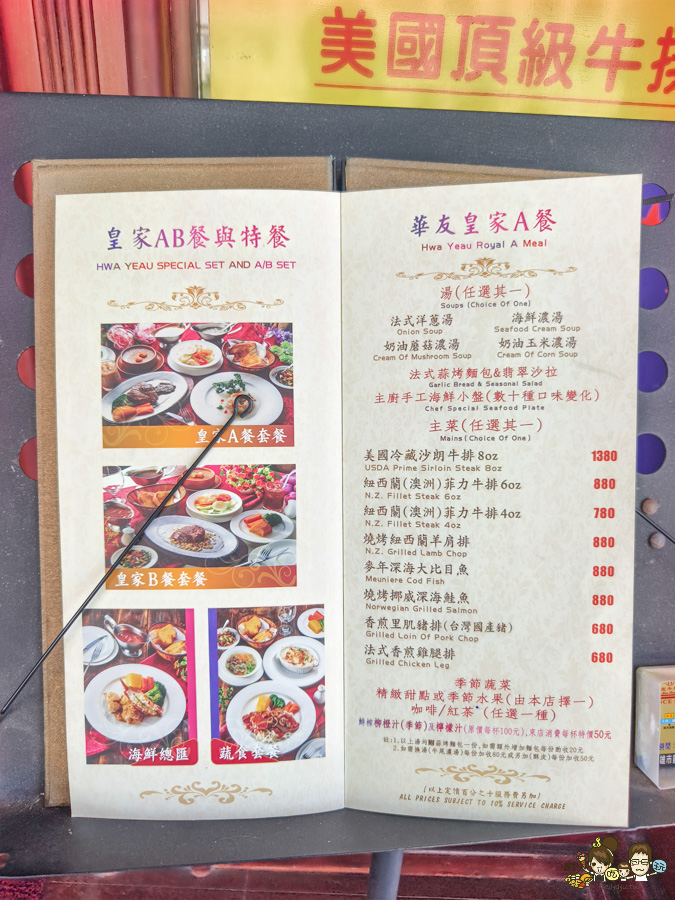 美國頂級牛排
皇家AB餐與特餐
HWA YEAU SPECIAL SET AND A/B SET
皇家A餐套餐
皇家B餐套餐
海鮮總匯
蔬食套餐
華友皇家A餐
Hwa Yeau Royal A Meal
湯(任選其一)
Soups (Choice Of One)
法式洋蔥湯 海鮮濃湯
Onion Soup Seafood Cream Soup
奶油蘑菇濃湯 奶油玉米濃湯
Cream Of Mushroom Soup Cream Of Corn Soup
法式蒜烤麵包&翡翠沙拉
Garlic Bread & Seasonal Salad
主廚手工海鮮小盤(數十種口味變化)
Chef Special Seafood Plate
主菜(任選其一)
Mains (Choice Of One)
美國冷藏沙朗牛排 8oz 1380
USDA Prime Sirloin Steak 8oz
紐西蘭(澳洲)菲力牛排 6oz 880
N.Z. Fillet Steak 6oz
紐西蘭(澳洲)菲力牛排 4oz 780
N.Z. Fillet Steak 4oz
燒烤紐西蘭羊肩排 880
N.Z. Grilled Lamb Chop
麥年深海大比目魚 880
Meuniere Cod Fish
燒烤挪威深海鮭魚 880
Norwegian Grilled Salmon
香煎里肌豬排(台灣國產豬) 680
Grilled Loin Of Pork Chop
法式香煎雞腿排 680
Grilled Chicken Leg
季節蔬菜
精緻甜點或季節水果(由本店擇一)
咖啡/紅茶 (任選一種)
鮮榨柳橙汁(季節)及檸檬汁(原價每杯100元),來店消費每杯特價50元
註:1.以上湯均附蒜烤麵包一份,如需額外增加麵包每份酌收20元
2.如需換湯(牛尾濃湯)每份加收80元或另加(酥皮)每份加收50元
(以上定價百分之十服務費另加)
ALL PRICES SUBJECT TO 10% SERVICE CHARGE